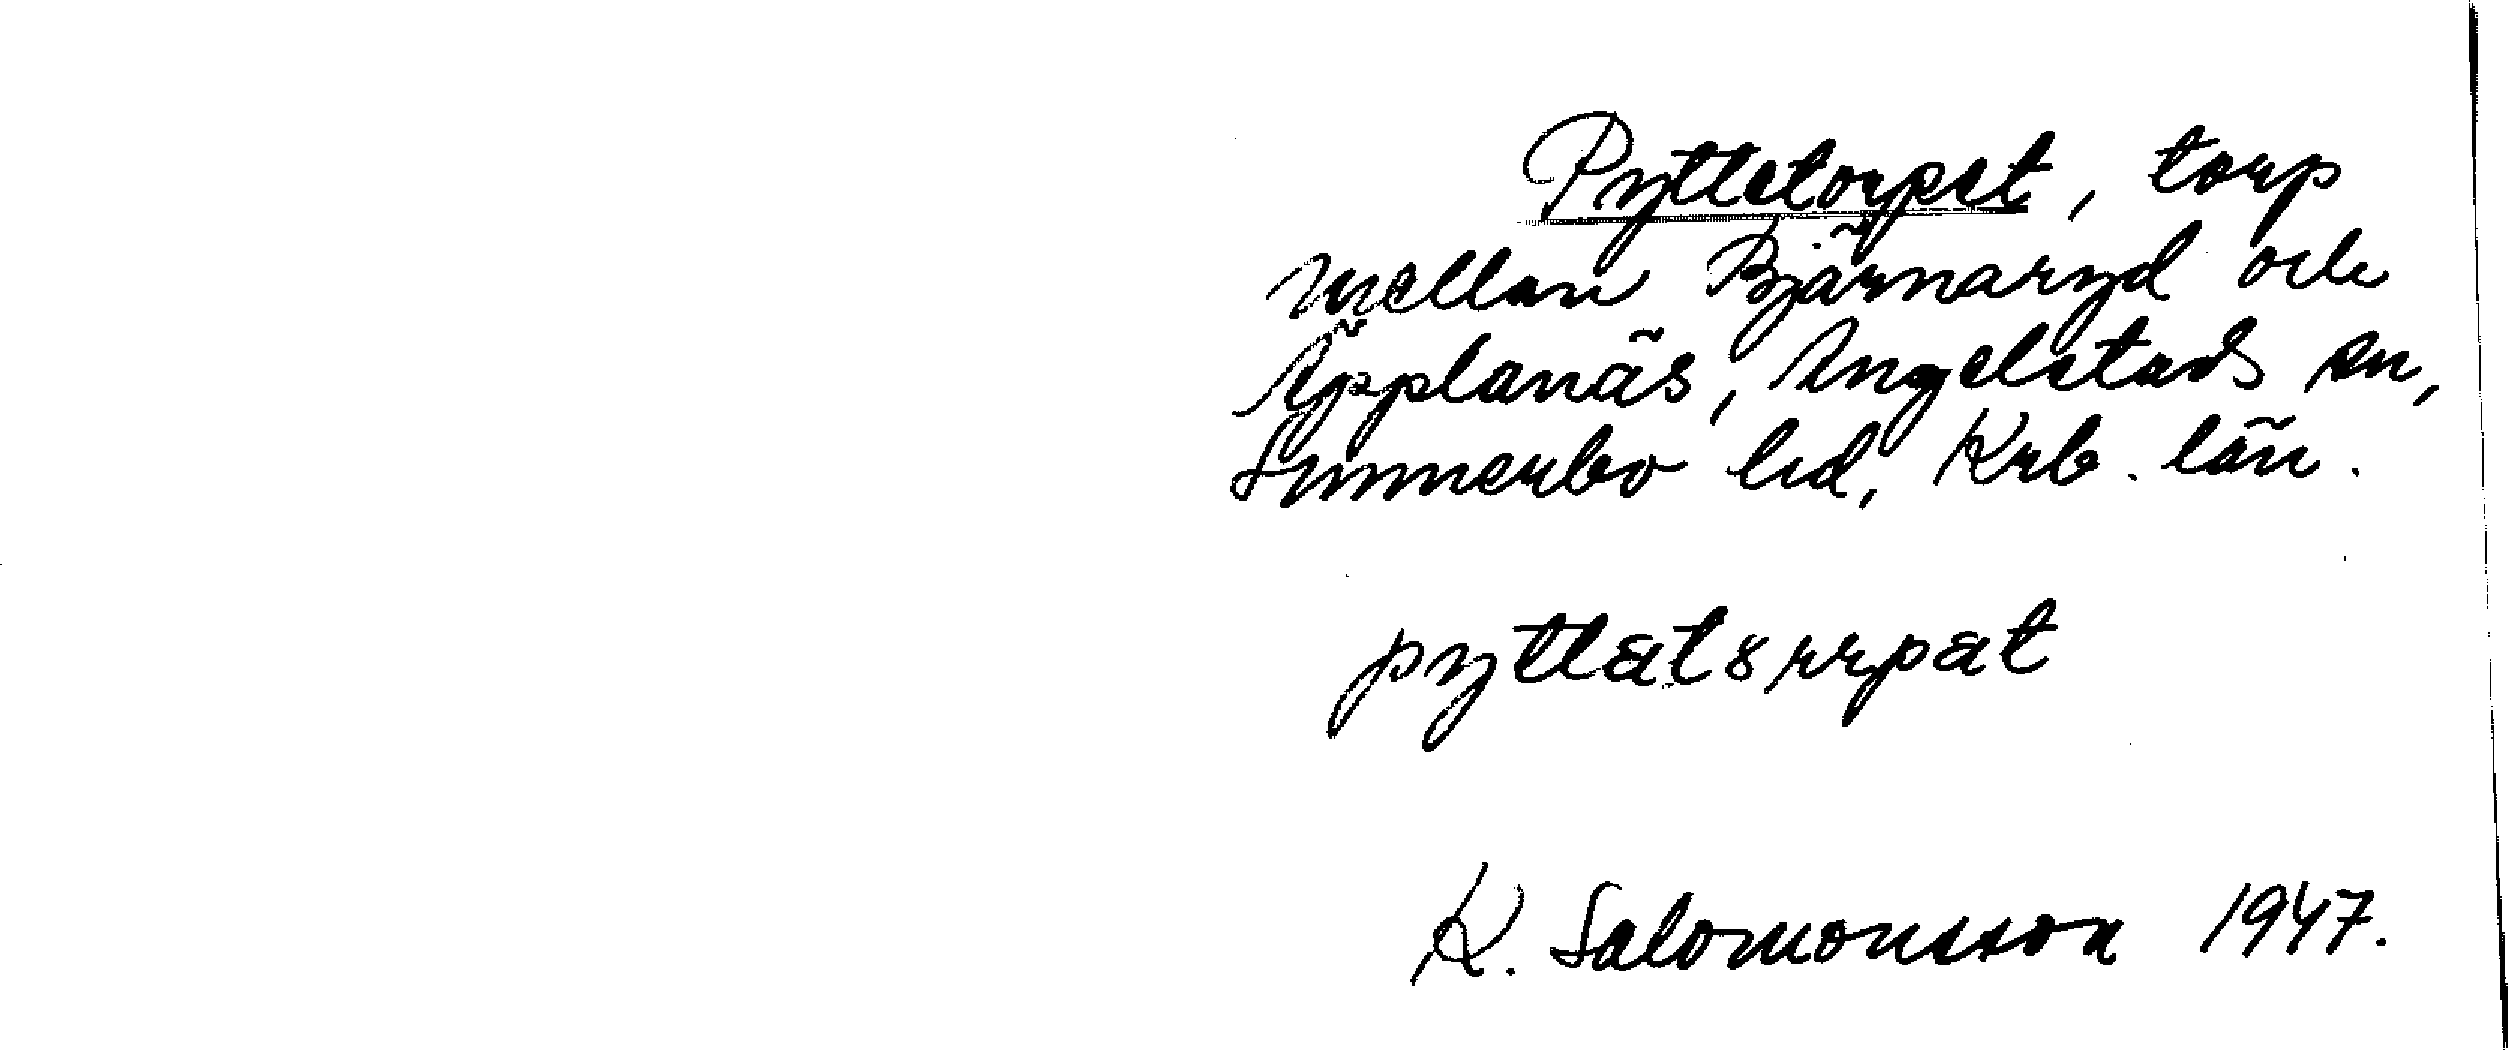 Pyttetorpet, torp
mellan Bjärnaryd och
Äpplanäs, Angelstads sn,
Sunnerbo hd, Krb. län.
pyttatorpat
K. Salomonsson 1947.